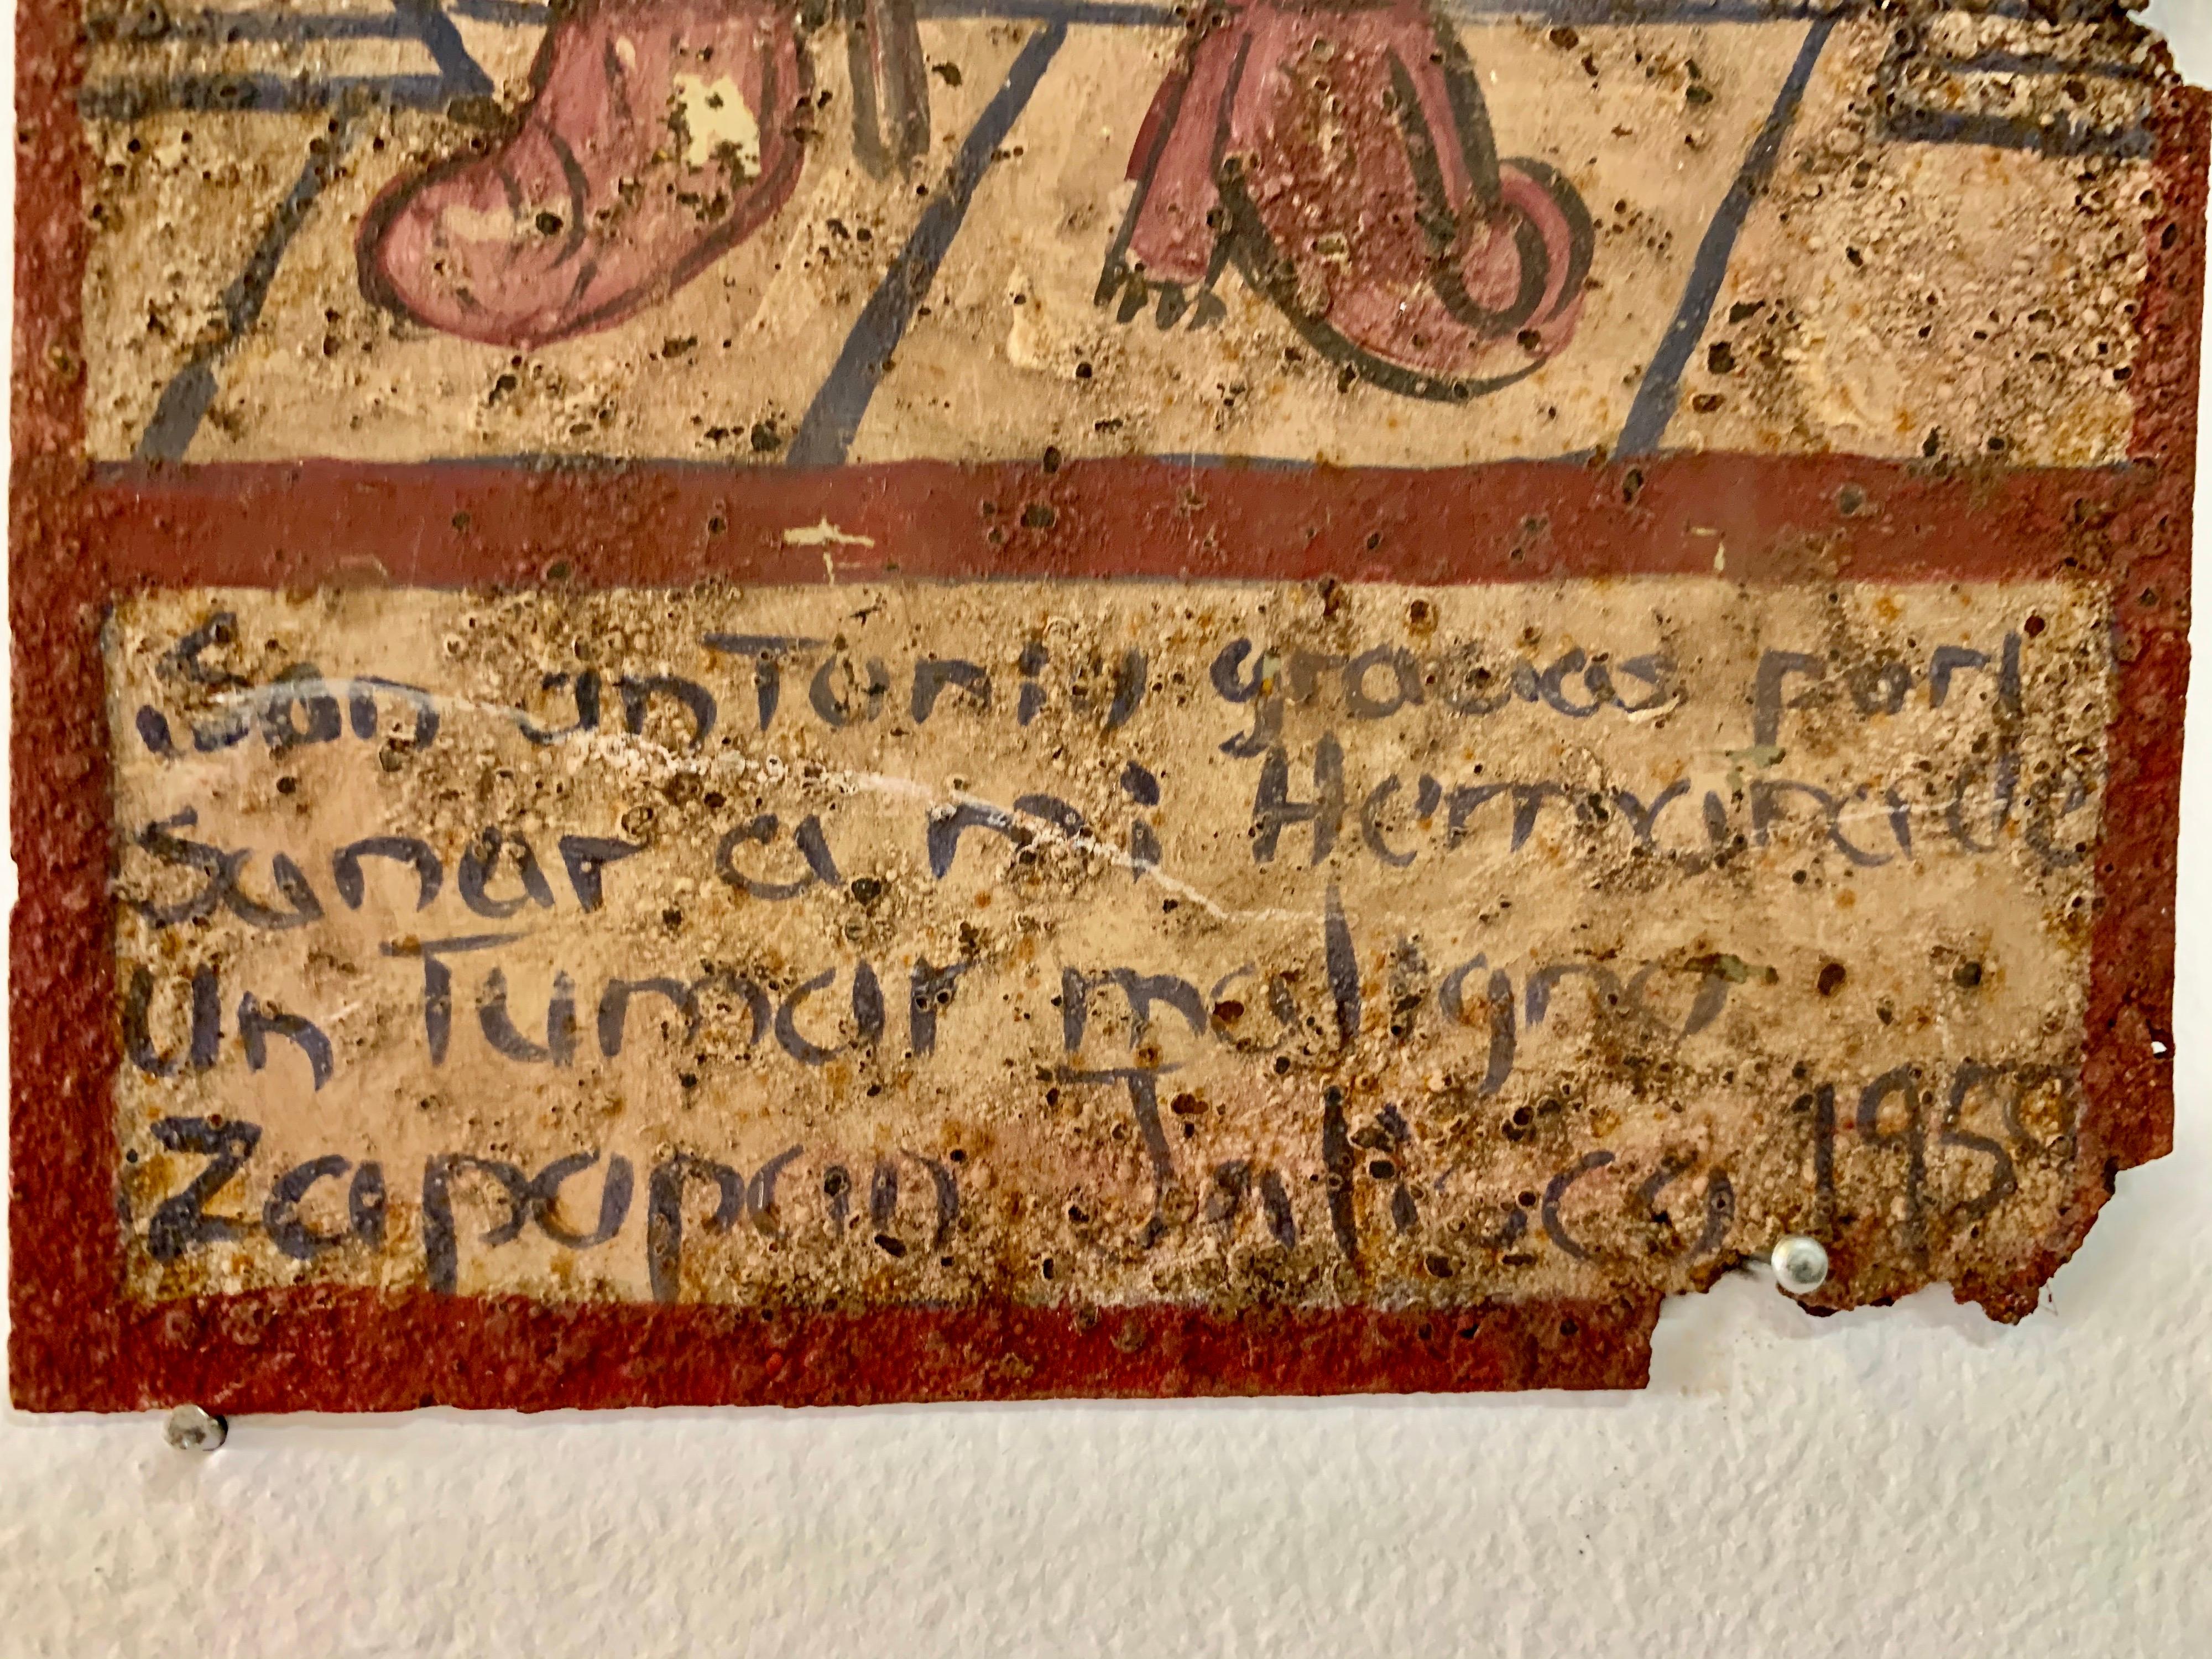 San anTonio gracias por
Sanar a mi Hermana de
un Tumor maligno
Zapopan Jalisco 1959